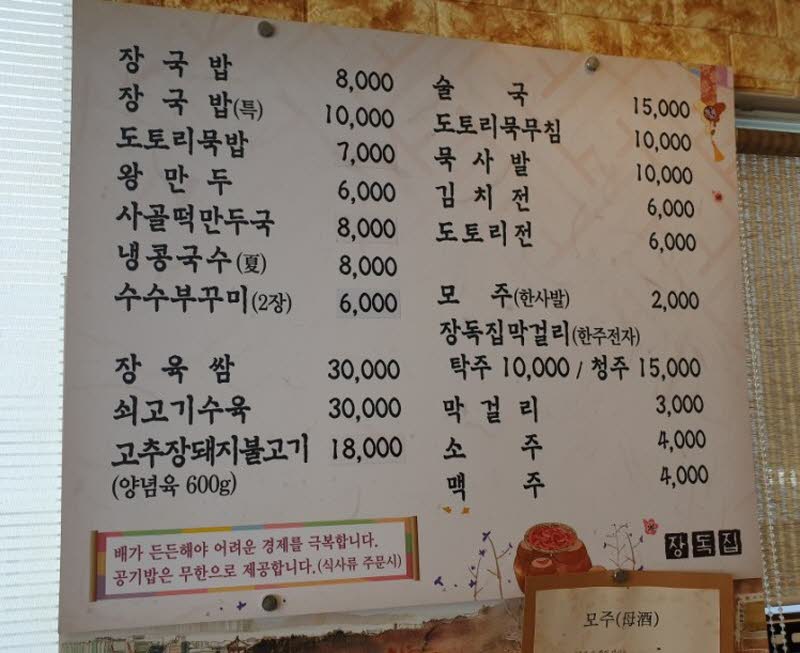 장국밥 8,000
장국밥(特) 10,000
도토리묵밥 7,000
왕만두 6,000
사골떡만두국 8,000
냉콩국수(夏) 8,000
수수부꾸미(2장) 6,000
장육쌈 30,000
쇠고기수육 30,000
고추장돼지불고기 18,000
(양념육 600g)
술국 15,000
도토리묵무침 10,000
묵사발 10,000
김치전 6,000
도토리전 6,000
모주(한사발) 2,000
장독집막걸리(한주전자)
탁주 10,000 / 청주 15,000
막걸리 3,000
소주 4,000
맥주 4,000
배가 든든해야 어려운 경제를 극복합니다.
공기밥은 무한으로 제공합니다.(식사류 주문시)
장독집
모주(母酒)